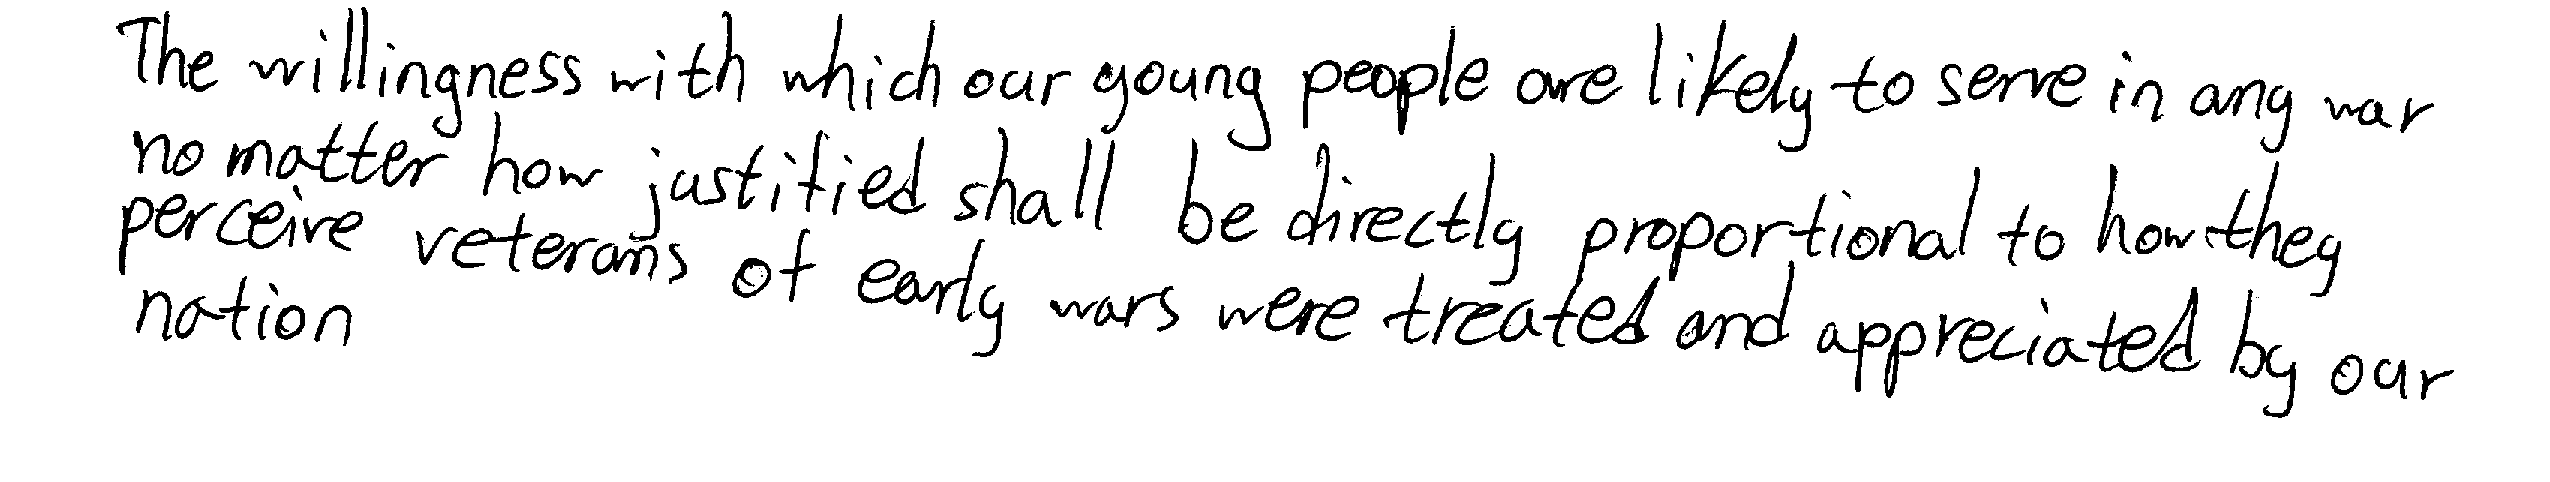 The willingness with which our young people are likely to serve in any war
no matter how justified shall be directly proportional to how they
perceive veterans of early wars were treated and appreciated by our
nation